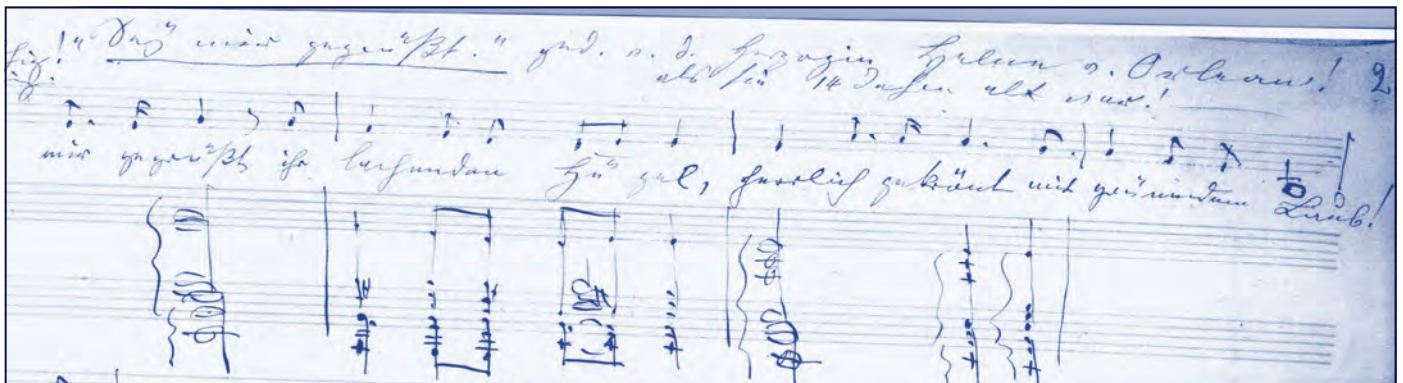 "Sey mir gegrüßt." ged. v. d. Herzogin Helene v. Orleans! 2
als sie 14 Jahre alt war!
mir gegrüßt ihr lachenden Hü gel, herrlich gekrönt mit grünendem Laub!